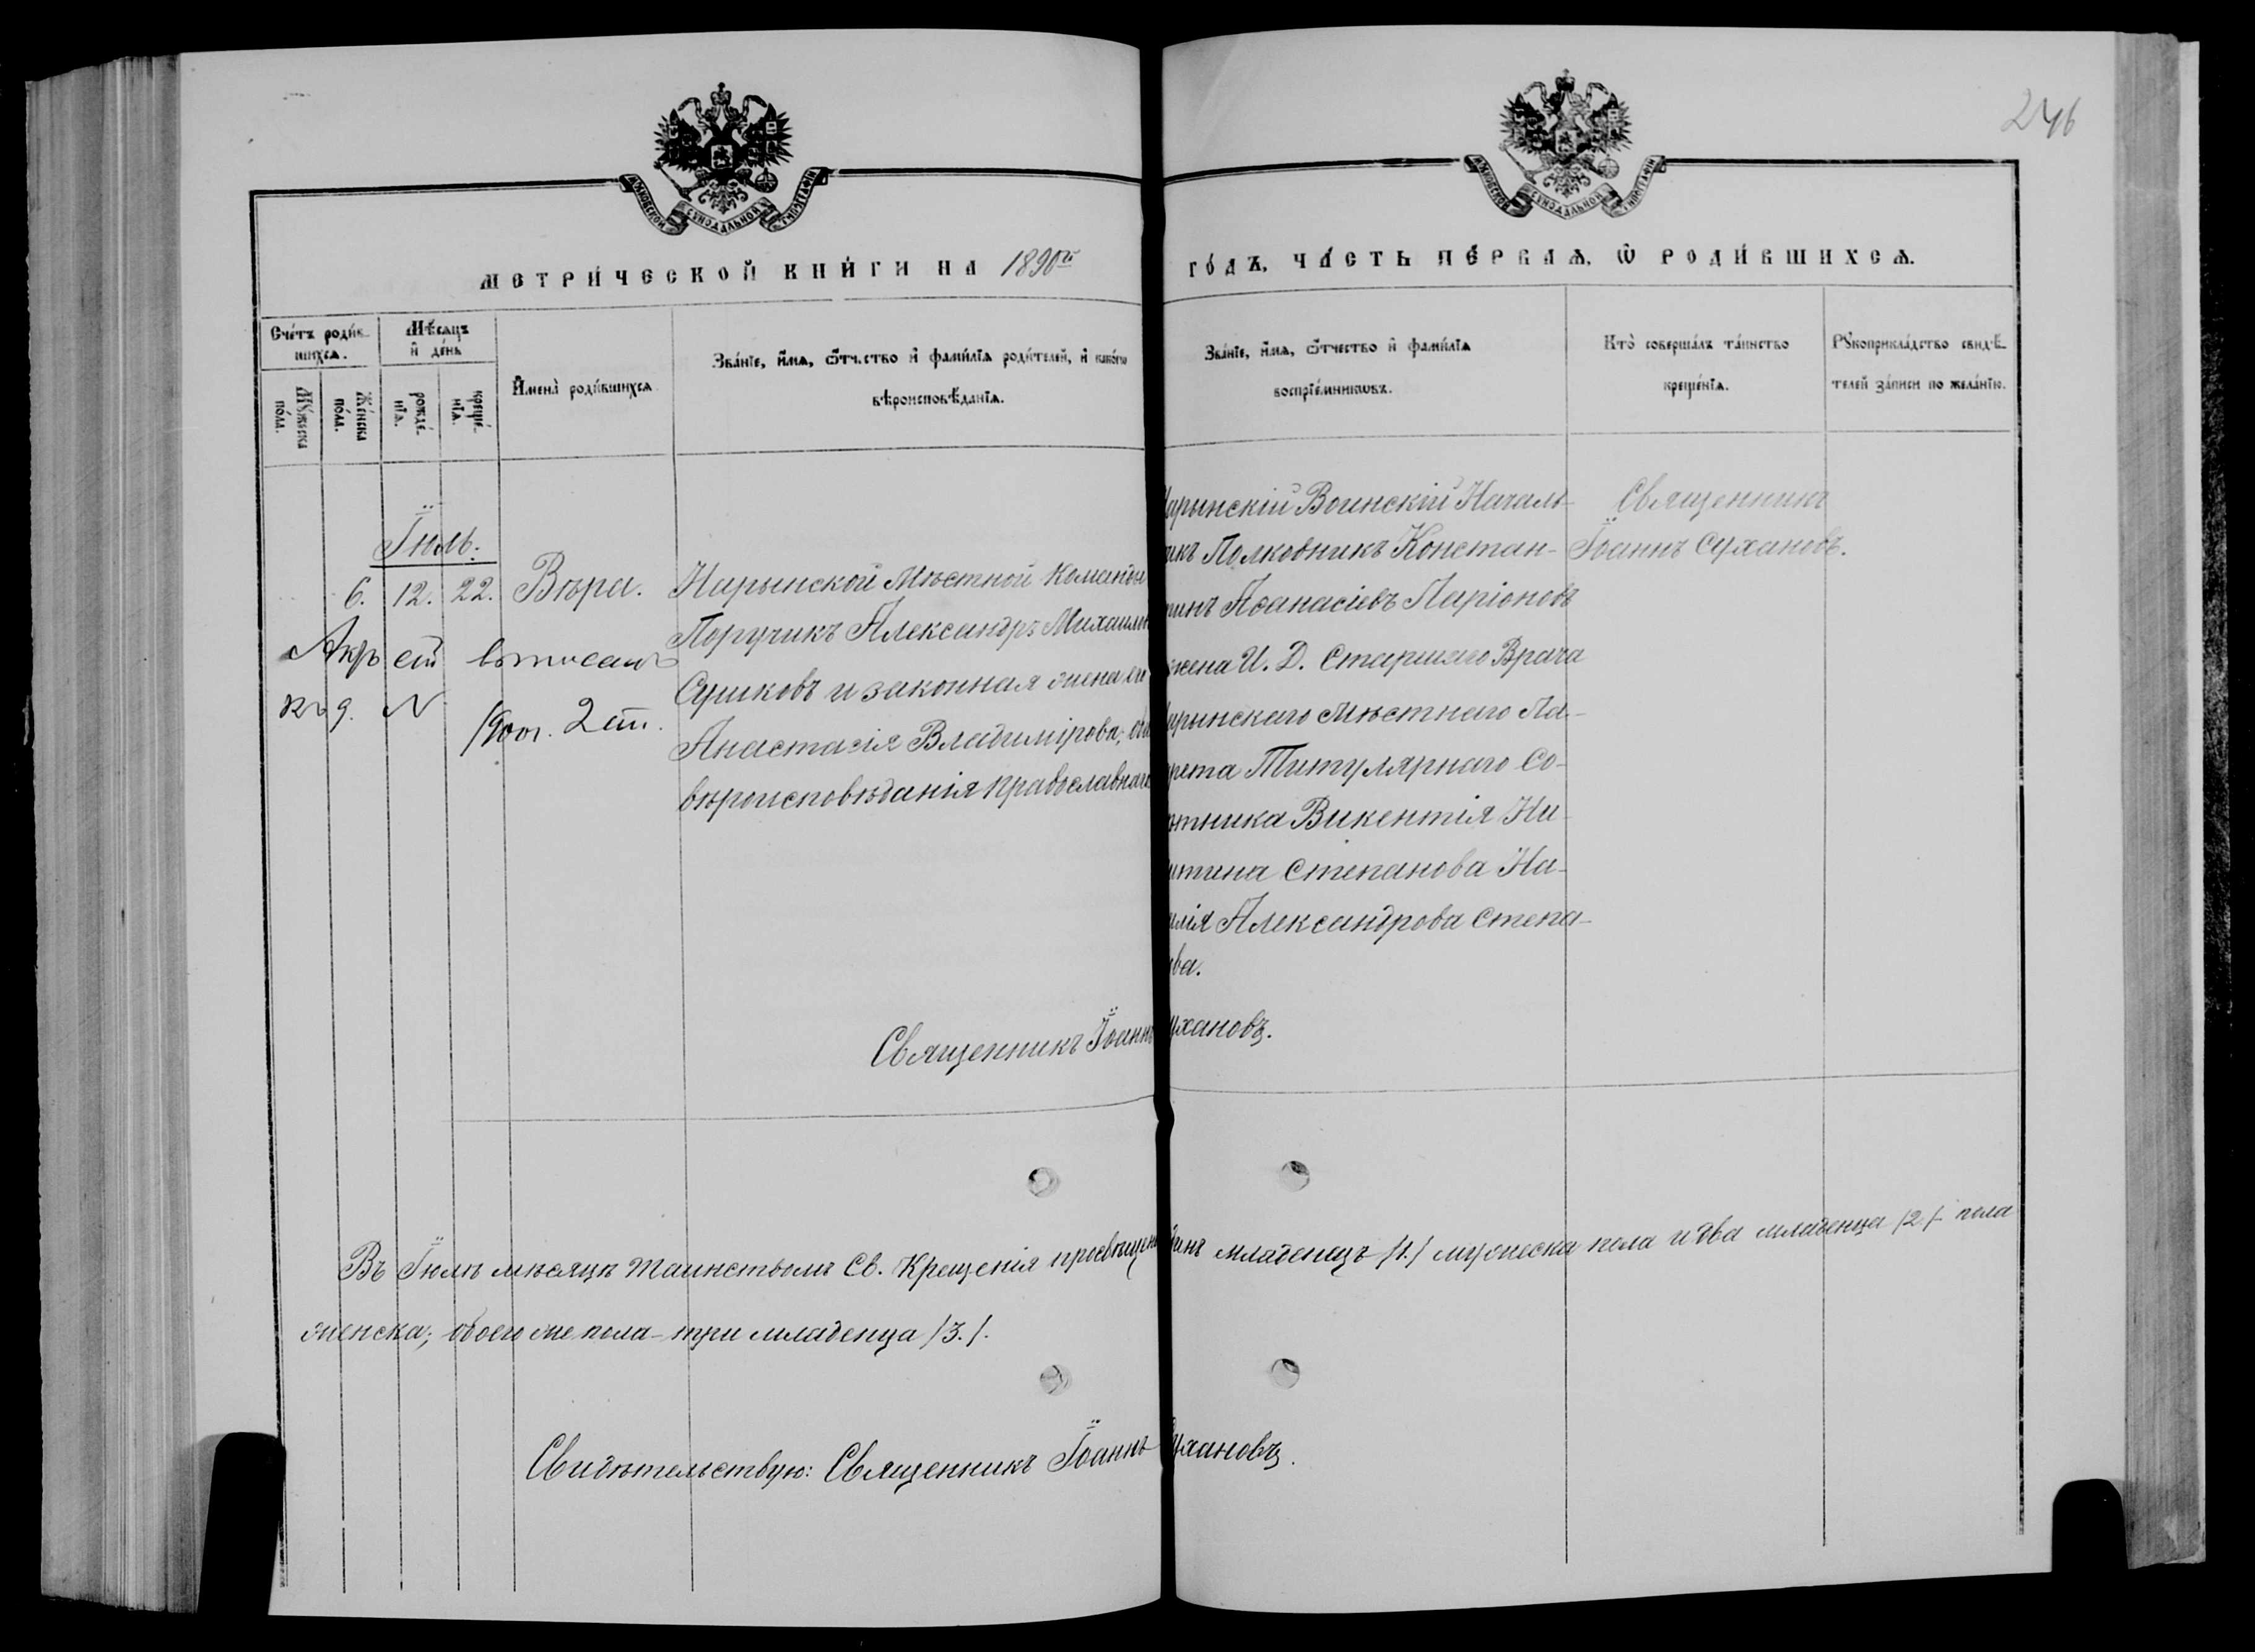 246
МОСКОВСКОЙ СѴНОДАЛЬНОЙ ТИПОГРАФІИ
МОСКОВСКОЙ СѴНОДАЛЬНОЙ ТИПОГРАФІИ
МЕТРИ́ЧЕСКОЙ КНИ́ГИ НА 1890й
ГО́ДЪ, ЧА́СТЬ ПЕ́РВАѦ, Ѡ РОДИ́ВШИХСѦ.
Сче́тъ роди́в-
шихсѧ.
Мꙋ́жеска по́ла.
Же́нска по́ла.
Мѣ́сѧцъ
и҆ де́нь
рожде́-
нїѧ.
креще́-
нїѧ.
И҆мена̀ роди́вшихсѧ
Зва́нїе, и҆́мѧ, ѻ҆́тчество и҆ фами́лїѧ роди́телей, и҆ како́гѡ
вѣроисповѣ́данїѧ.
Зва́нїе, и҆́мѧ, ѻ҆́тчество и҆ фами́лїѧ
воспрїе́мникѡвъ.
Кто̀ соверша́лъ та́инство
креще́нїѧ.
Рꙋкоприкла́дство свидѣ́-
телей за́писи по жела́нїю.
Іюль.
6. 12. 22. Вѣра.
Нарынской Мѣстной Команды
Поручикъ Александръ Михаилов
Сушковъ и законная жена его
Анастасія Владимірова; оба
вѣроисповѣданія православнаго
выписанъ
2 ст.
арынскій Воинскій Началь-
икъ Полковникъ Констан-
тинъ Аѳанасіевъ Ларіоновъ
жена И. Д. Старшаго Врача
арынскаго Мѣстнаго Ла-
рета Титулярнаго Со-
ѣтника Викентія Ни-
итина Степанова На-
алія Александрова Степа-
ова.
Священникъ
Іоаннъ Сухановъ.
Священникъ Іоаннъ ухановъ.
Въ Іюлѣ мѣсяцѣ Таинствомъ Св. Крещенія просвѣщен динъ младенецъ /1./ мужеска пола и два младенца /2./ пола
женска; обоего же пола - три младенца /3./.
Свидѣтельствую: Священникъ Іоаннъ Сухановъ.